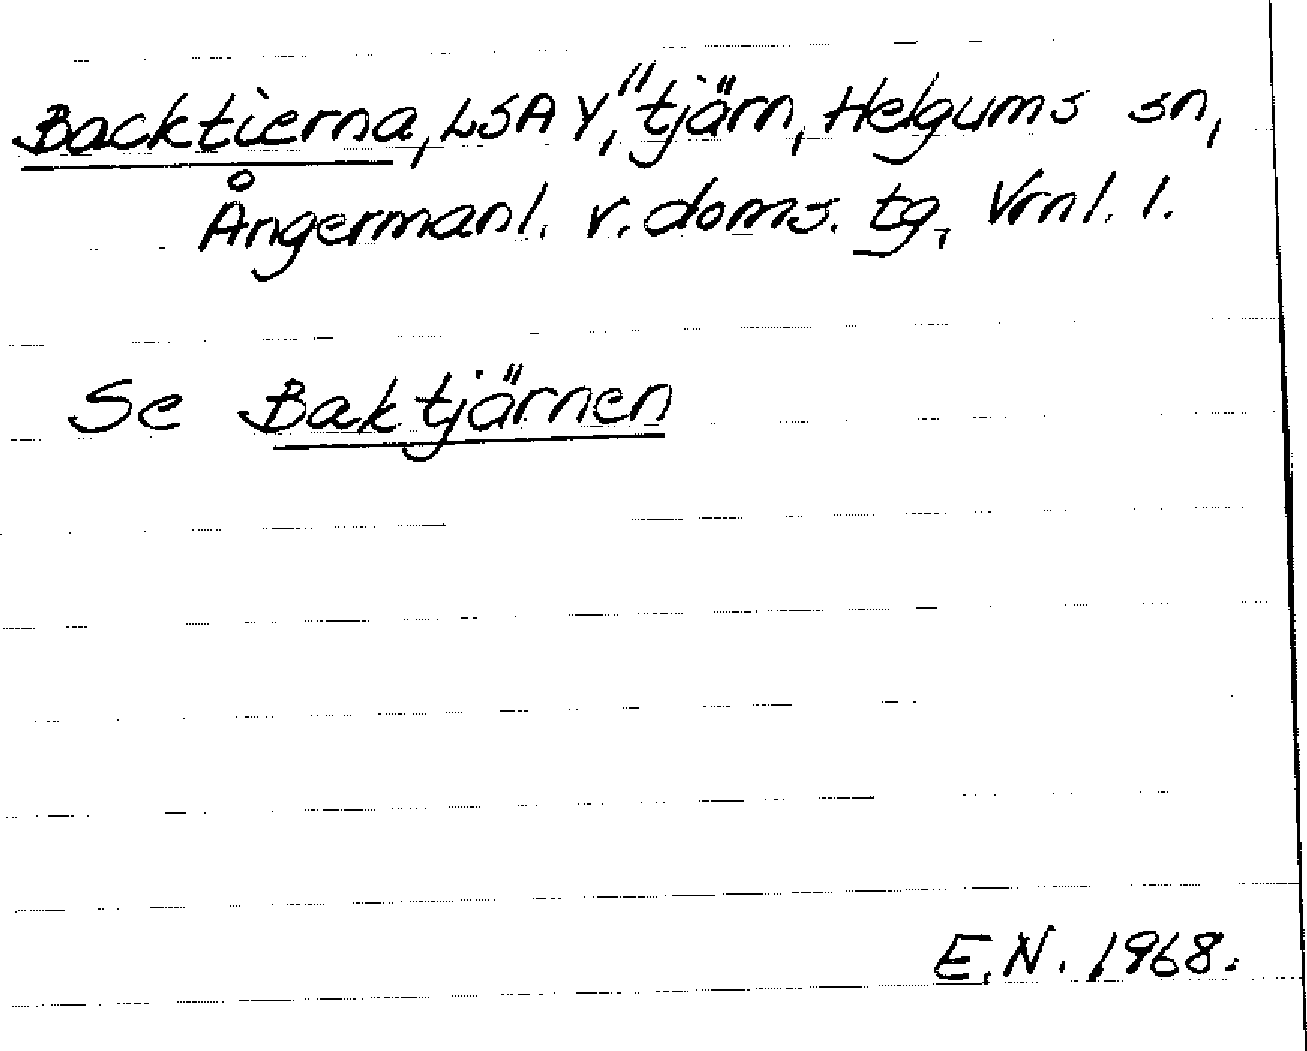 Backtierna, LSA Y, "tjärn, Helgums sn,
Ångermanl. v. doms. tg, Vrnl. l.
Se Baktjärnen
E.N. 1968.